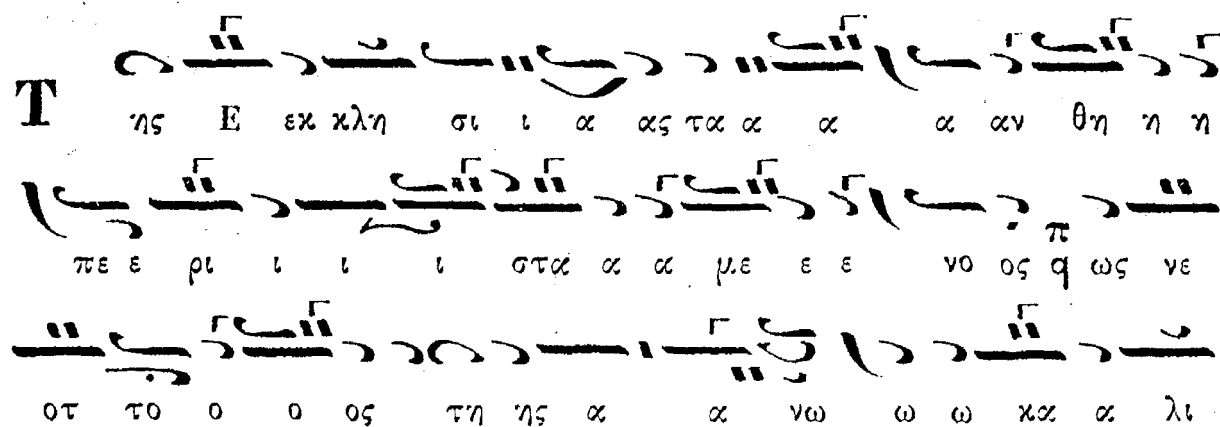 Τ ης Ε εκ κλη σι ι α ας τα α α α αν θη η η
πε ε ρι ι ι ι στα α α με ε ε νο ος π q ως νε
οτ το ο ο ος τη ης α α νω ω ω κα α λι